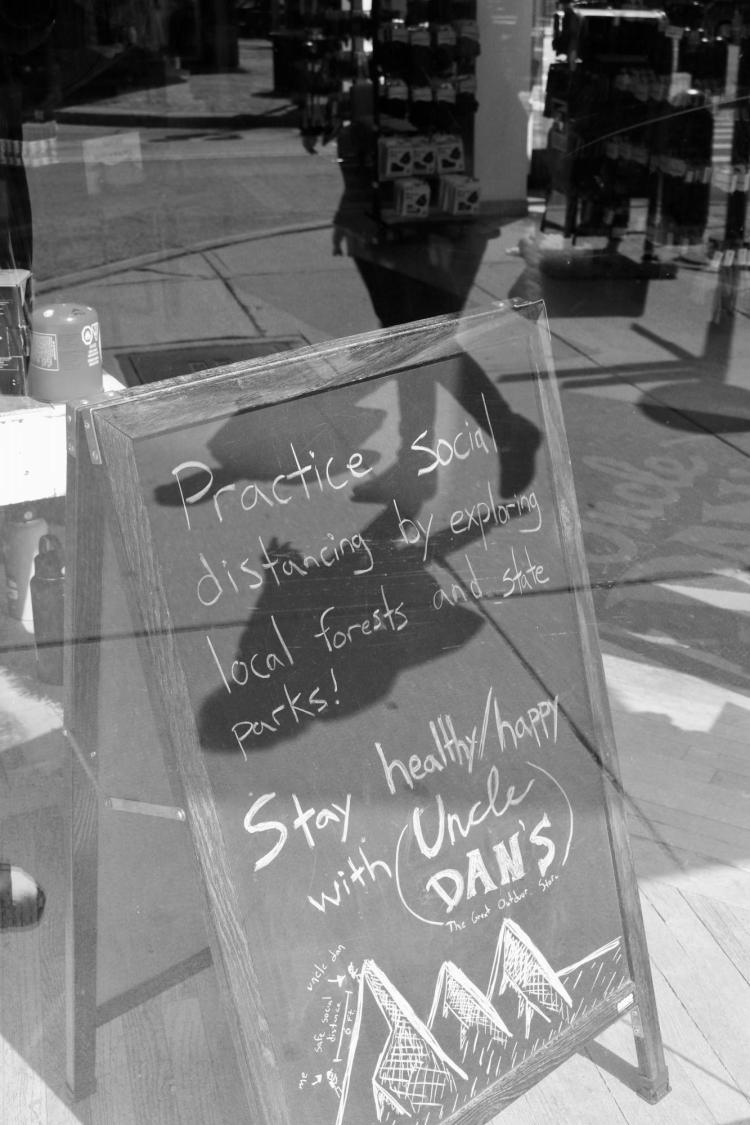 Practice Social
distancing by exploring
local forests and state
parks!
Stay healthy/happy
with Uncle
DAN'S
The Great Outdoor Store
uncle dan
safe social
distance
6 ft
me
Uncle